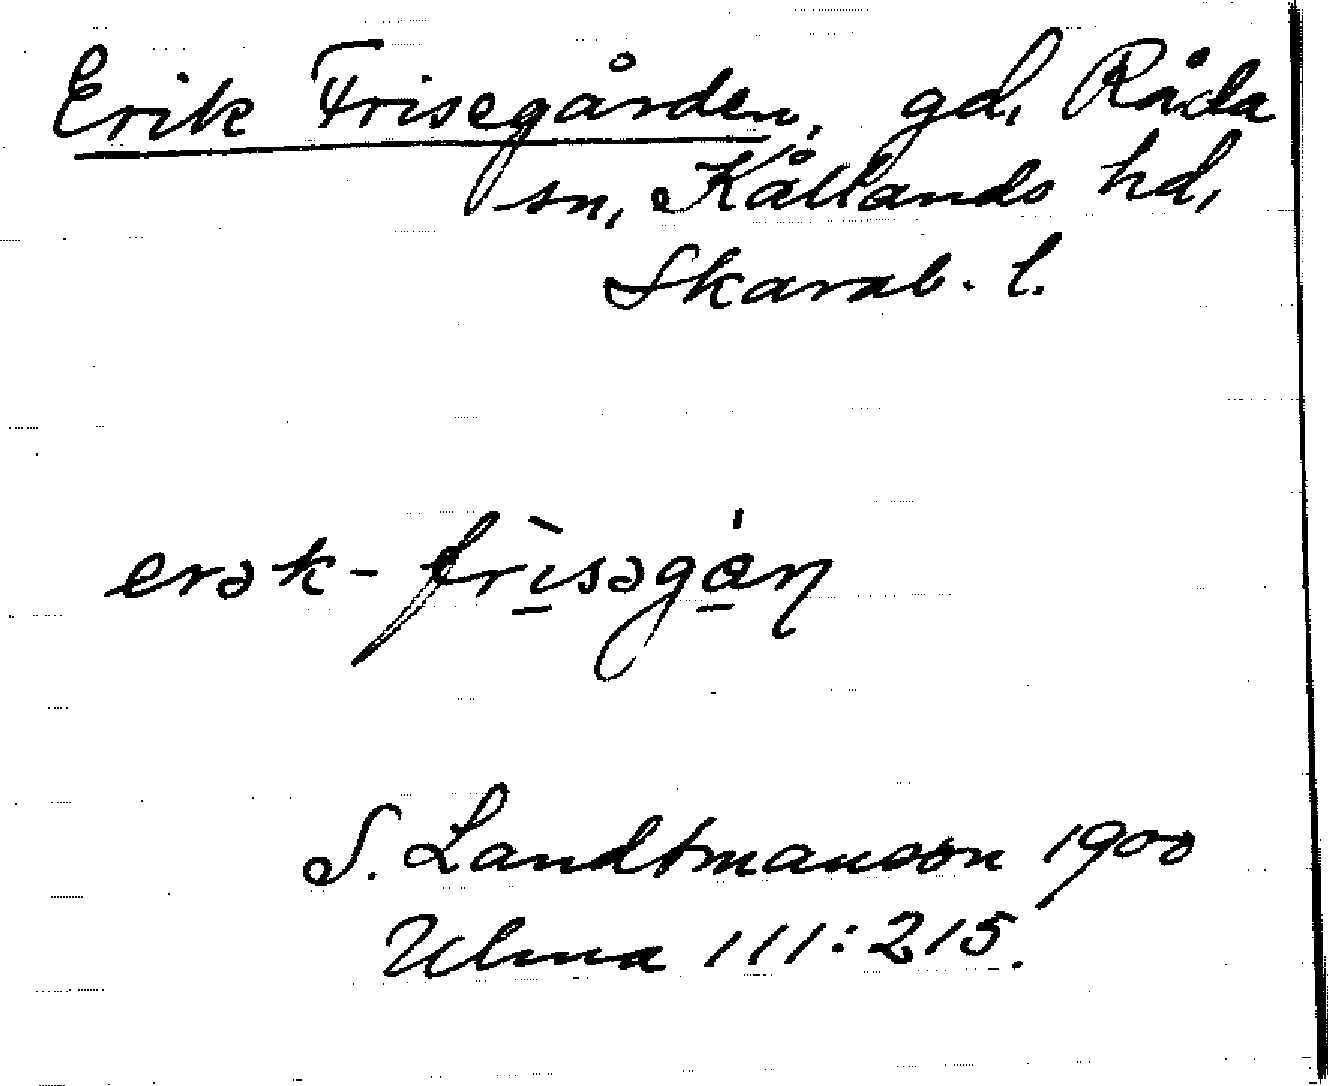 Erik Frisegården, gd, Råda
sn, Kållands hd,
Skarab. l.
erək-frìsəgán
S. Landtmanson 1900
Ulma 111:215.